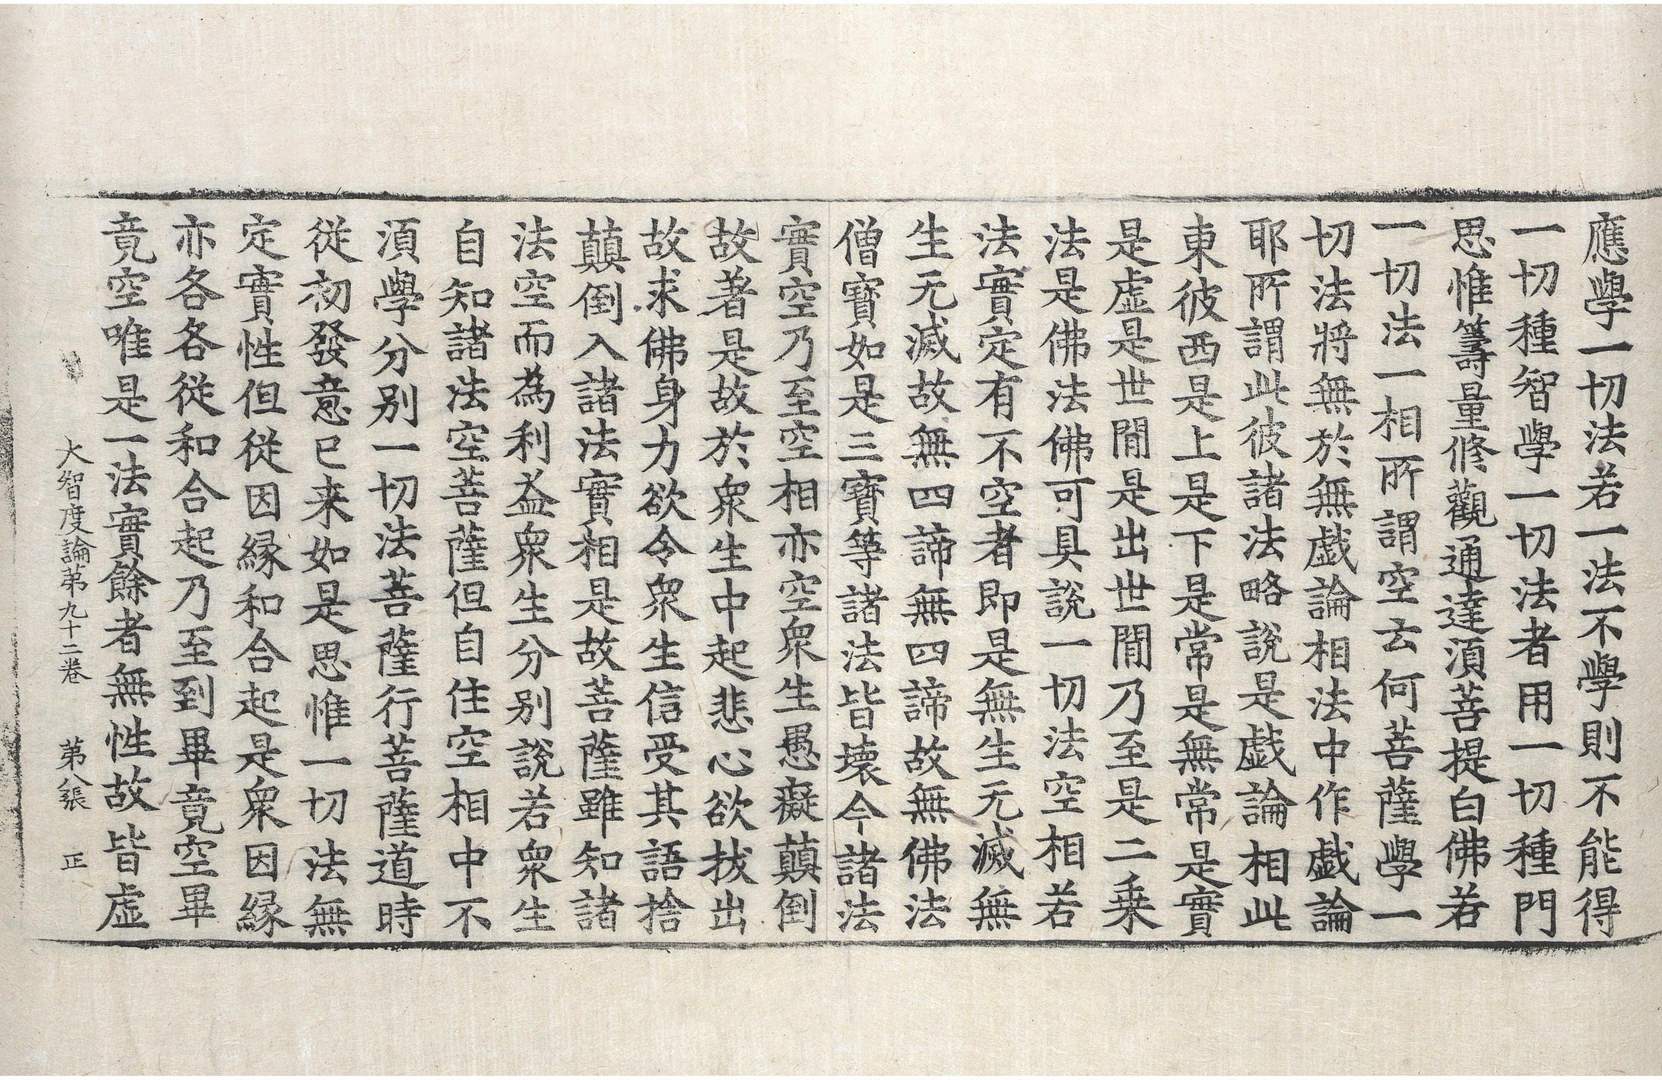 應學一切法若一法不學則不能得
一切種智學一切法者用一切種門
思惟籌量修觀通達湏菩提白佛若
一切法一相所謂空云何菩薩學一
切法將無於無戲論相法中作戲論
耶所謂此彼諸法略說是戲論相此
東彼西是上是下是常是無常是實
是虛是世閒是出世閒乃至是二乗
法是佛法佛可具說一切法空相若
法實定有不空者即是無生无滅無
生无滅故無四諦無四諦故無佛法
僧寶如是三寶等諸法皆壞今諸法
實空乃至空相亦空衆生愚癡顛倒
故著是故於衆生中起悲心欲拔出
故求佛身力欲令衆生信受其語捨
顛倒入諸法實相是故菩薩雖知諸
法空而為利益衆生分別說若衆生
自知諸法空菩薩但自住空相中不
湏學分別一切法菩薩行菩薩道時
從初發意已来如是思惟一切法無
定實性但從因緣和合起是衆因緣
亦各各從和合起乃至到畢竟空畢
竟空唯是一法實餘者無性故皆虛
大智度論第九十二卷 第八張 正